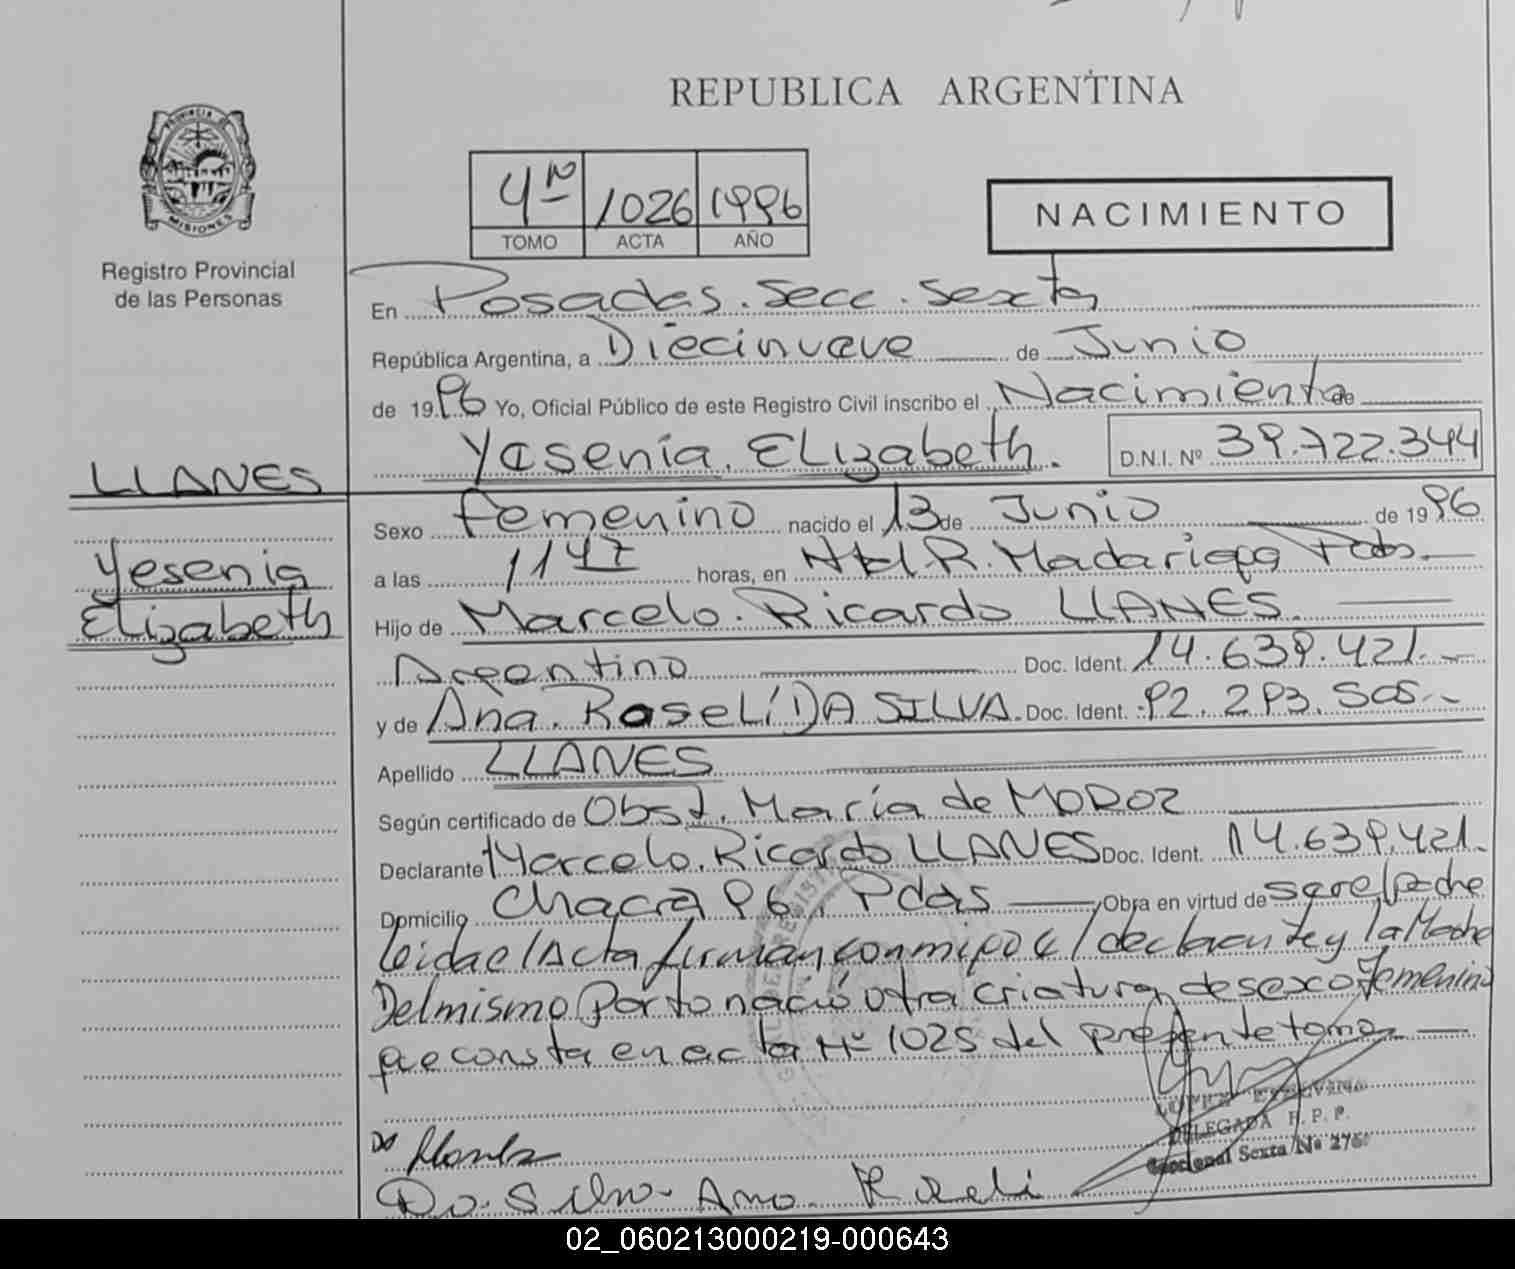 REPUBLICA ARGENTINA
PROVINCIA DE
MISIONES
Registro Provincial
de las Personas
4º 1026 1996
TOMO ACTA AÑO
NACIMIENTO
En Posadas. Secc. Sexta
República Argentina, a Diecinueve de Junio
de 1996 Yo, Oficial Público de este Registro Civil inscribo el Nacimiento de
Yesenia Elizabeth. D.N.I. Nº 39.722.344
LLANES
Yesenia
Elizabeth
Sexo femenino nacido el 13 de Junio de 1996
a las 11 47 horas, en R. Madariaga Pdas.
Hijo de Marcelo Ricardo LLANES
Argentino Doc. Ident. 14.639.421.
y de Ana Roseli DA SILVA. Doc. Ident. 92.293.505
Apellido LLANES
Según certificado de Obst. María de MOROZ
Declarante Marcelo Ricardo LLANES Doc. Ident. 14.639.421.
Domicilio Chacra 96, Pdas Obra en virtud de ser el padre
leída el Acta firman conmigo el declarante y la Madre
Del mismo Parto nació otra criatura de sexo Femenino
que consta en acta Nº 1025 del presente tomo
DELEGADA R. P. P.
Seccional Sexta Nº 275
Da Silva Ana Roseli
02_060213000219-000643